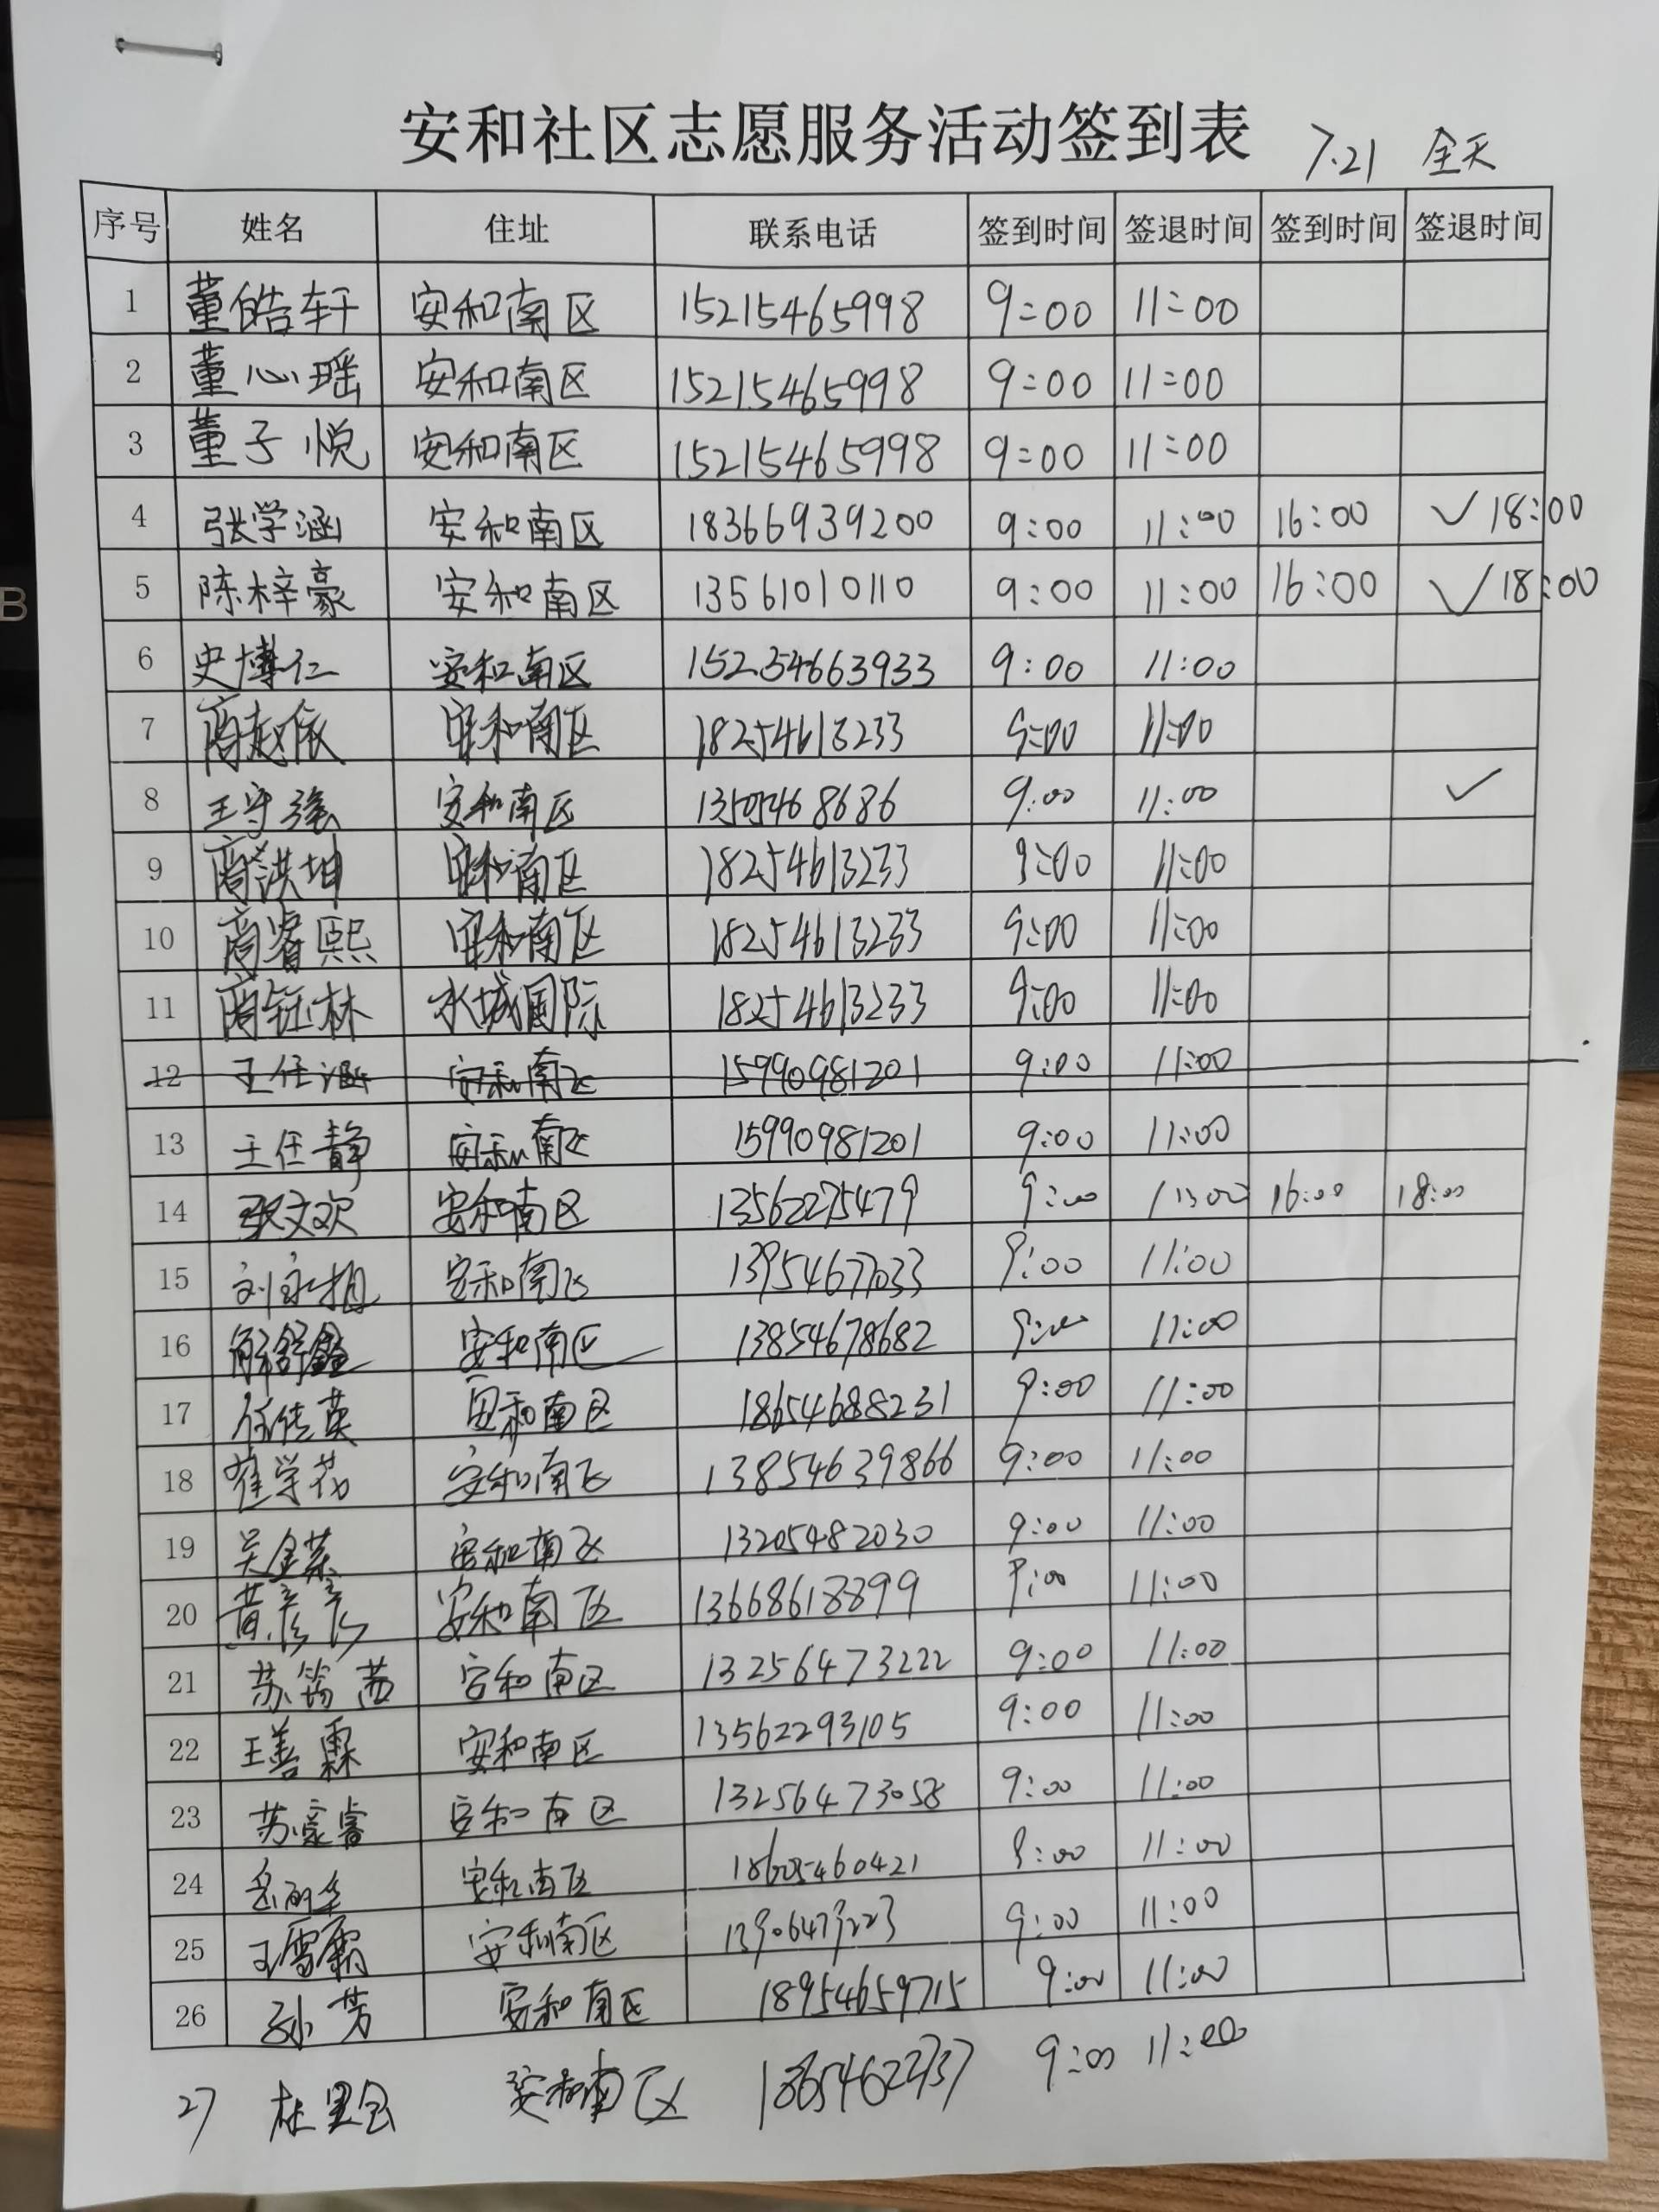 安和社区志愿服务活动签到表 7.21 全天
序号 姓名 住址 联系电话 签到时间 签退时间 签到时间 签退时间
1 董皓轩 安和南区 15215465998 9:00 11:00
2 董心瑶 安和南区 15215465998 9:00 11:00
3 董子悦 安和南区 15215465998 9:00 11:00
4 张学涵 安和南区 18366939200 9:00 11:00 16:00 ✓18:00
5 陈梓豪 安和南区 13561010110 9:00 11:00 16:00 ✓18:00
6 史博仁 安和南区 15254663933 9:00 11:00
7 商赵依 安和南区 18254613233 9:00 11:00
8 王守强 安和南区 13505468686 9:00 11:00 ✓
9 商洪坤 安和南区 18254613233 9:00 11:00
10 商睿熙 安和南区 18254613233 9:00 11:00
11 商钰林 水城国际 18254613233 9:00 11:00
12 王任涵 安和南区 15990981201 9:00 11:00
13 王任静 安和南区 15990981201 9:00 11:00
14 张文欢 安和南区 13562275479 9:00 11:00 16:00 18:00
15 刘永 安和南区 13954677033 9:00 11:00
16 解舒鑫 安和南区 13854678682 9:00 11:00
17 徐传英 安和南区 18654688231 9:00 11:00
18 崔学花 安和南区 13854639866 9:00 11:00
19 吴金荣 安和南区 13205482030 9:00 11:00
20 黄彦彦 安和南区 13668618899 9:00 11:00
21 苏筠茜 安和南区 13256473222 9:00 11:00
22 王善霖 安和南区 13562293105 9:00 11:00
23 苏豪睿 安和南区 13256473058 9:00 11:00
24 岳丽华 安和南区 18605460421 9:00 11:00
25 王雪霜 安和南区 13906479223 9:00 11:00
26 孙芳 安和南区 18954659715 9:00 11:00
27 杜 安和南区 9:00 11:00
B